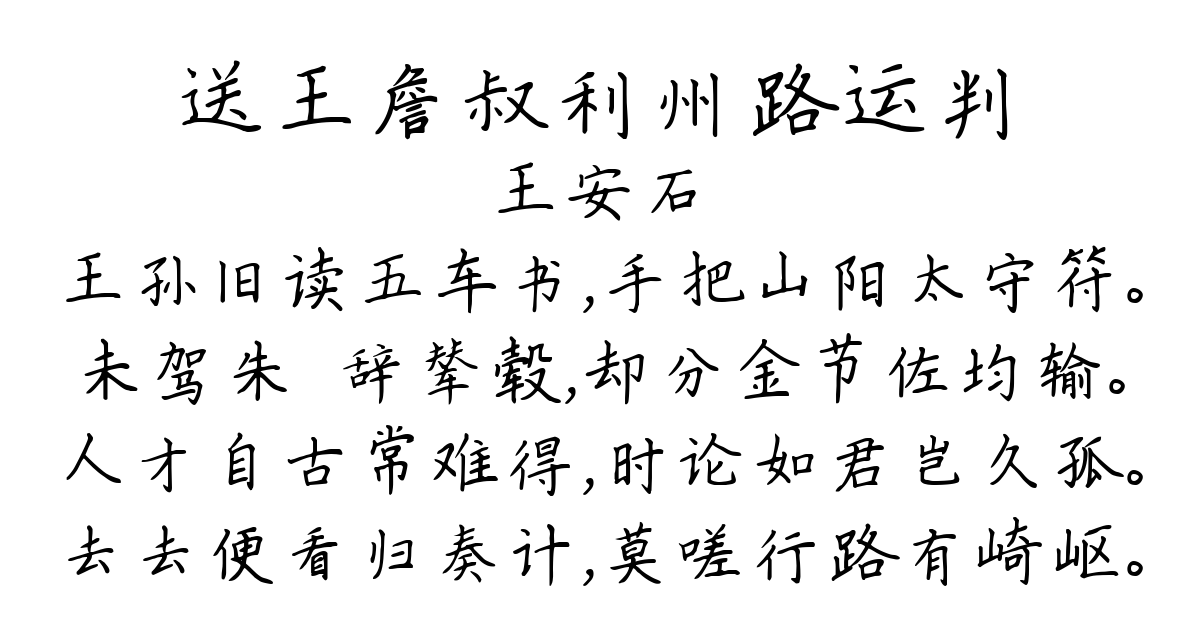 送王詹叔利州路运判
王安石
王孙旧读五车书,手把山阳太守符。
未驾朱 辞辇毂,却分金节佐均输。
人才自古常难得,时论如君岂久孤。
去去便看归奏计,莫嗟行路有崎岖。